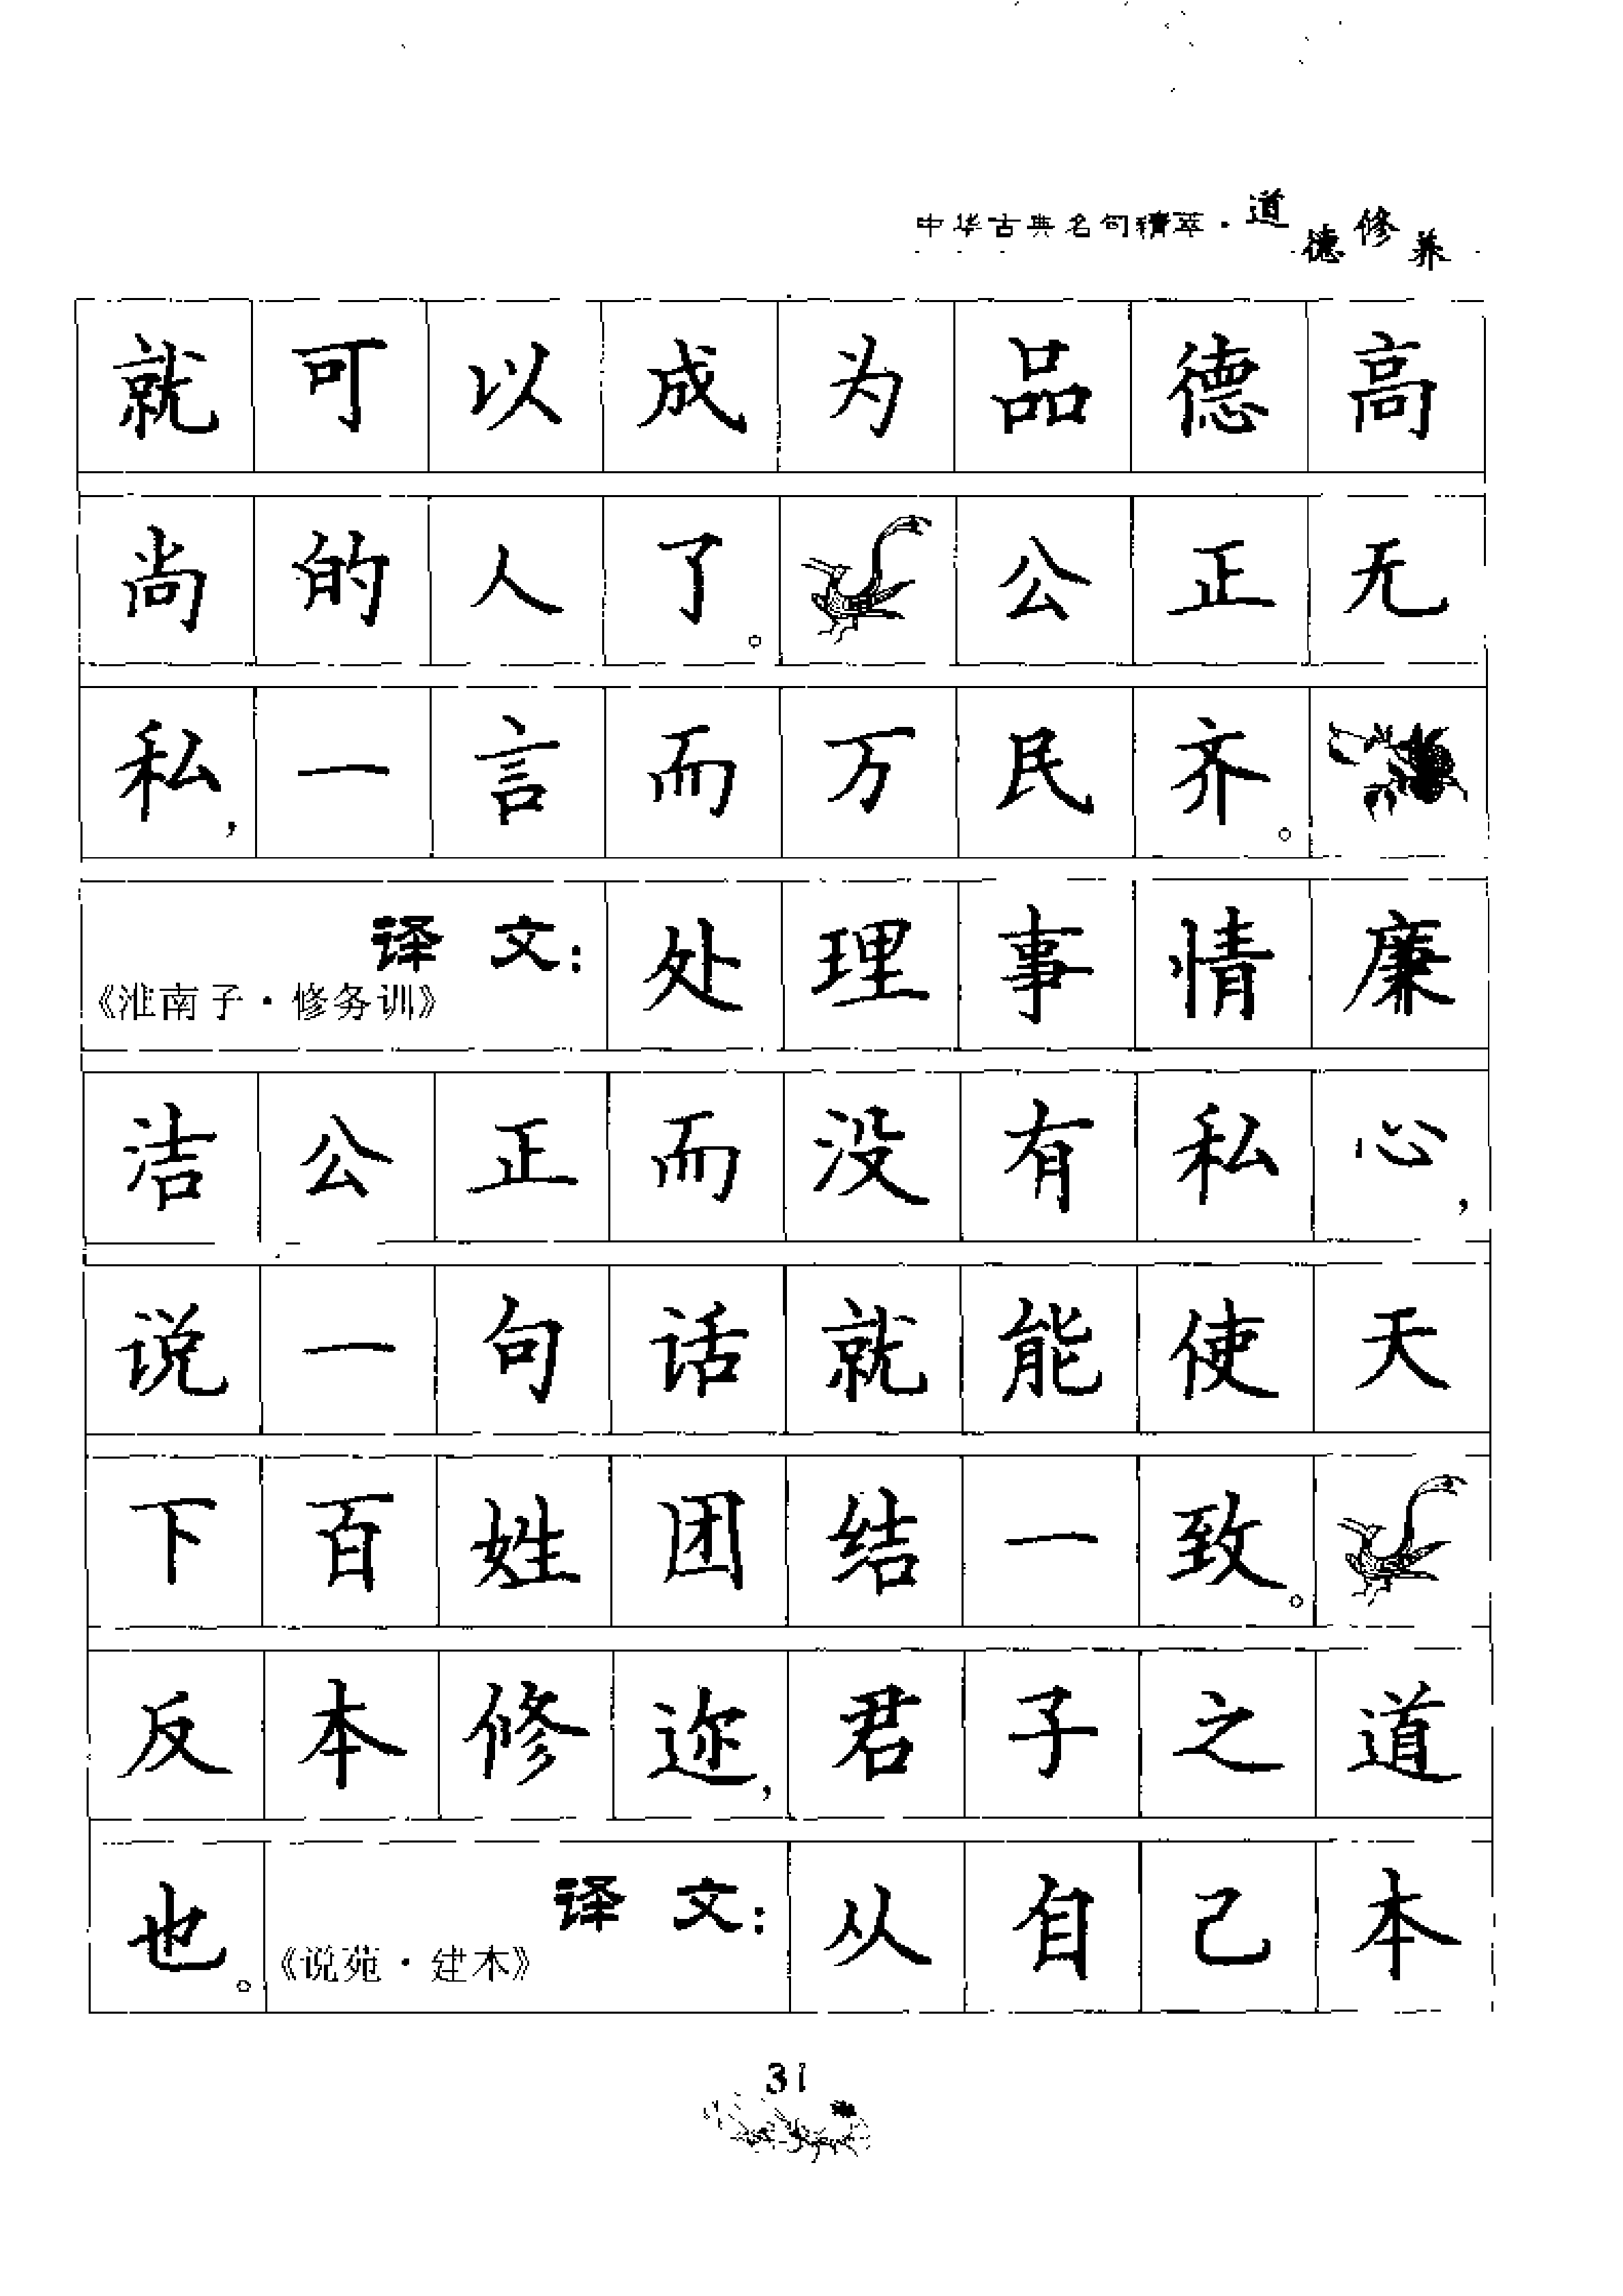 中华古典名句精萃·道德修养
就可以成为品德高
尚的人了。公正无
私，一言而万民齐。
《淮南子·修务训》译文：处理事情廉
洁公正而没有私心，
说一句话就能使天
下百姓团结一致。
反本修迩，君子之道
也。《说苑·建木》译文：从自己本
31